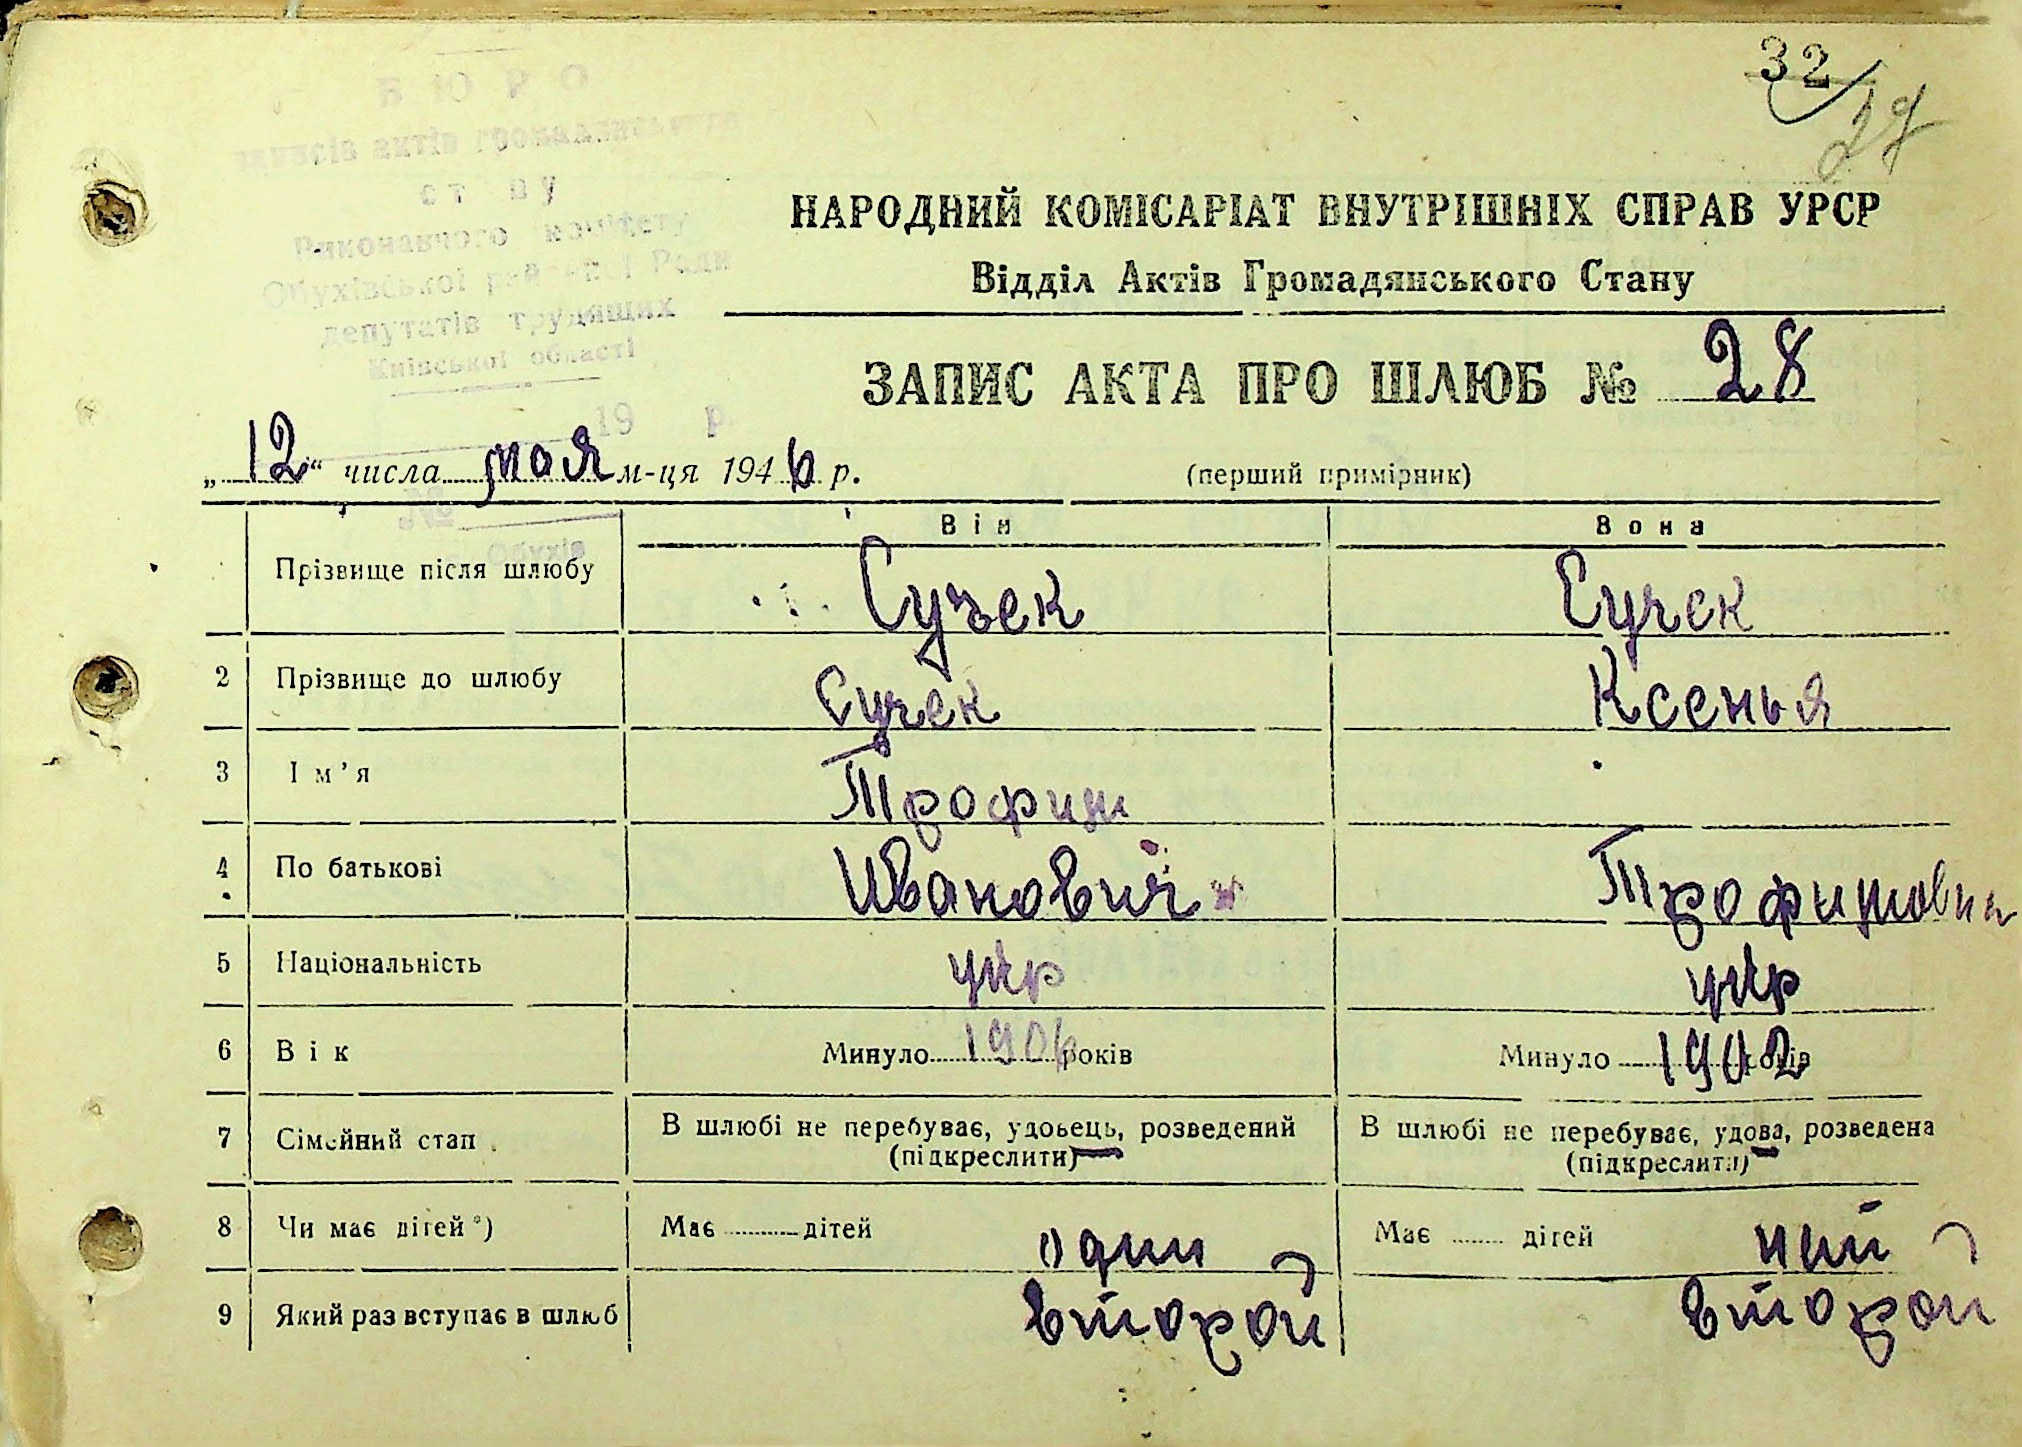 32
29
БЮРО
записів актів громадянського
стану
Виконавчого комітету
Обухівської районної Ради
депутатів трудящих
Київської області
19 р.
№
Обухів
НАРОДНИЙ КОМІСАРІАТ ВНУТРІШНІХ СПРАВ УРСР
Відділ Актів Громадянського Стану
ЗАПИС АКТА ПРО ШЛЮБ № 28
„12“ числа мая м-ця 1946 р. (перший примірник)
Він Вона
Прізвище після шлюбу Сучек Сучек
2 Прізвище до шлюбу Сучек Ксенья
3 Ім’я Трофим
4 По батькові Иванович Трофимовна
5 Національність укр укр
6 Вік Минуло 1906 років Минуло 1902 років
7 Сімейний стан В шлюбі не перебуває, удовець, розведений (підкреслити) В шлюбі не перебуває, удова, розведена (підкреслити)
8 Чи має дітей*) Має дітей один Має дітей ний
9 Який раз вступає в шлюб второй второй